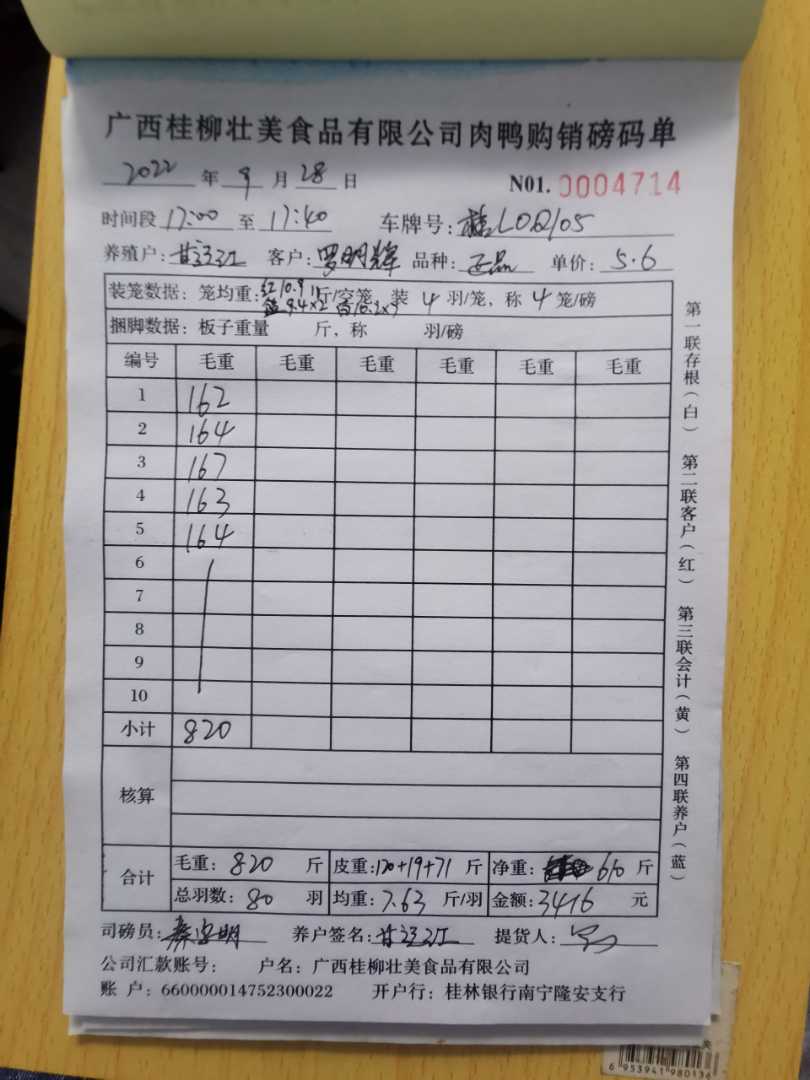 广西桂柳壮美食品有限公司肉鸭购销磅码单
2022 年 9 月 28 日 N01. 0004714
时间段 17:00 至 17:40 车牌号: 桂L0Q105
养殖户: 甘 江 客户: 罗明辉 品种: 正品 单价: 5.6
装笼数据: 笼均重: 红10.9 11 斤/空笼, 装 4 羽/笼, 称 4 笼/磅
蓝9.4×2 白10.2×7
捆脚数据: 板子重量 斤, 称 羽/磅
编号 毛重 毛重 毛重 毛重 毛重 毛重
1 162
2 164
3 167
4 163
5 164
6
7
8
9
10
小计 820
核算
合计 毛重: 820 斤 皮重: 120+19+71 斤 净重: 610 斤
总羽数: 80 羽 均重: 7.63 斤/羽 金额: 3416 元
司磅员: 明 养户签名: 甘 江 提货人:
公司汇款账号: 户名: 广西桂柳壮美食品有限公司
账 户: 660000014752300022 开户行: 桂林银行南宁隆安支行
第一联存根(白) 第二联客户(红) 第三联会计(黄) 第四联养户(蓝)
6 953941 980136